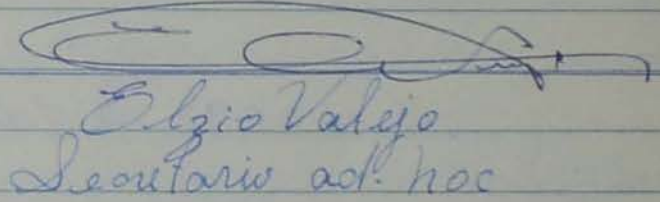 Elzio Valejo
Secretario ad. hoc